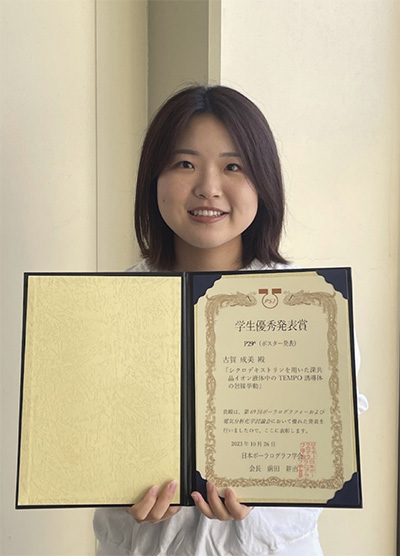 PSJ
学生優秀発表賞
P29* (ポスター発表)
古賀 成美 殿
「シクロデキストリンを用いた深共
晶イオン液体中の TEMPO 誘導体
の包接挙動」
貴殿は、第69回ポーラログラフィーおよび
電気分析化学討論会において優れた発表を
行いましたので、ここに表彰します。
2023 年 10 月 26 日
日本ポーラログラフ学会
会長 前田 耕治